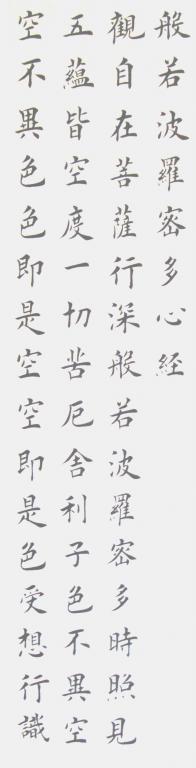 般若波羅密多心経
觀自在菩薩行深般若波羅密多時照見
五蘊皆空度一切苦厄舍利子色不異空
空不異色色即是空空即是色受想行識